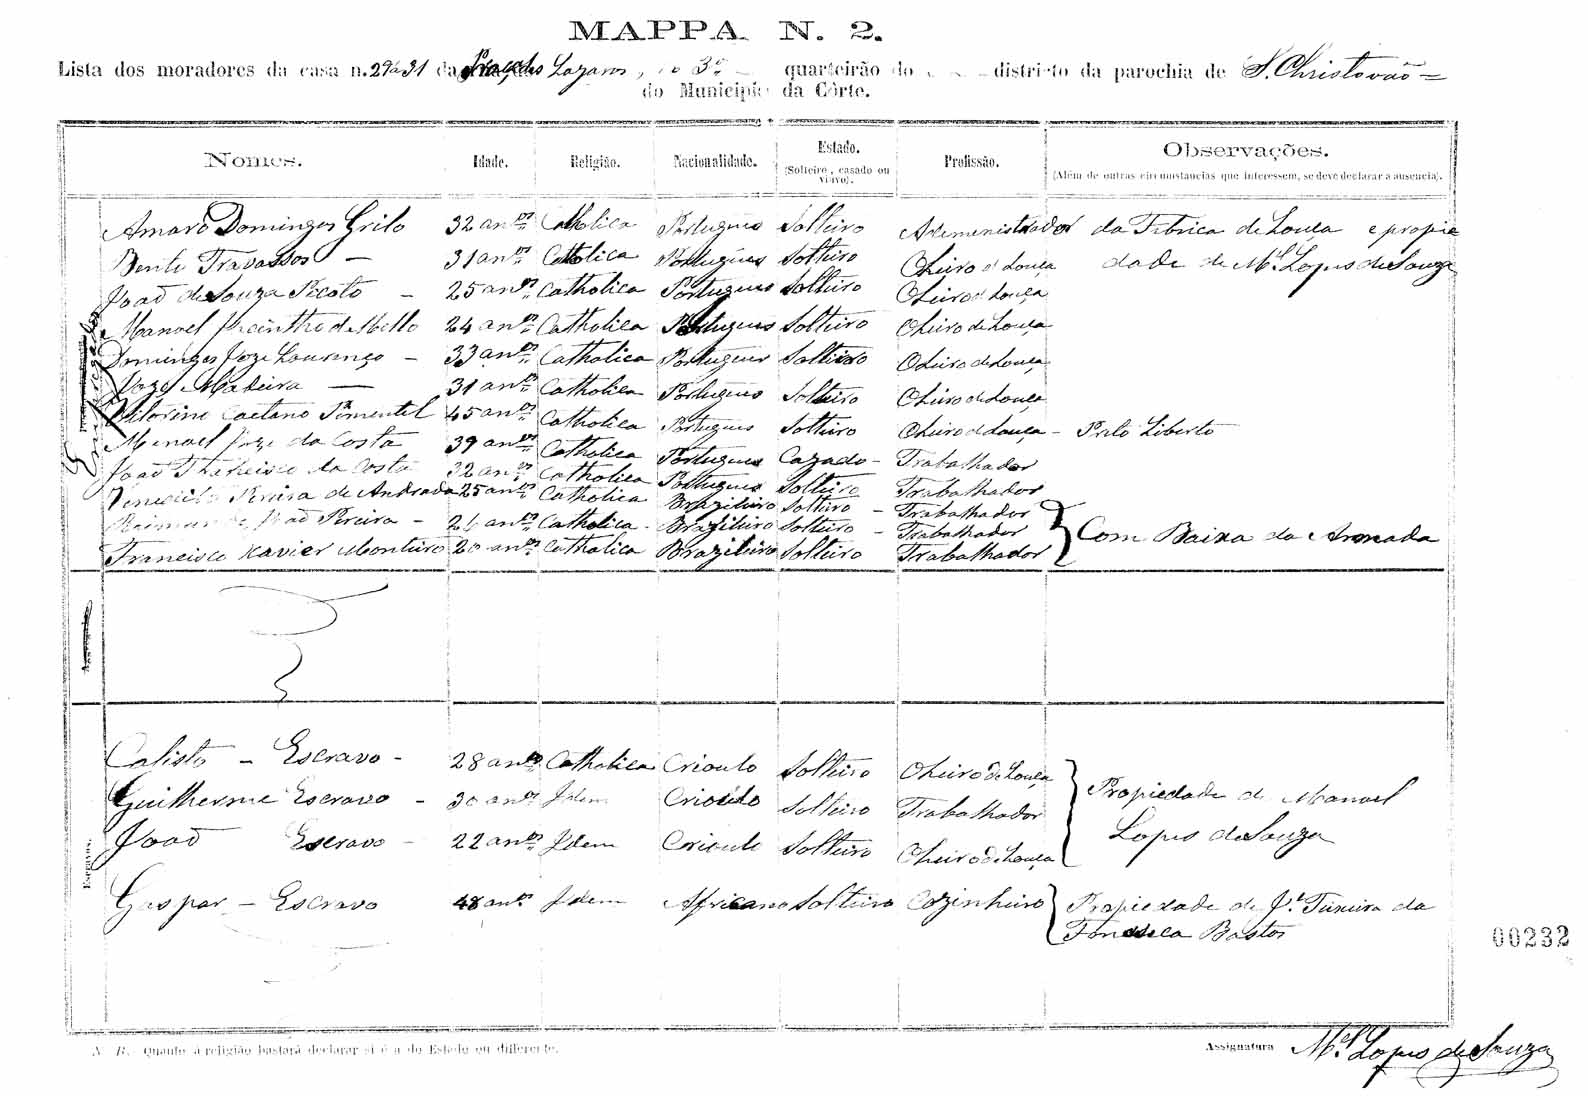 MAPPA N. 2.
Lista dos moradores da casa n. 29 a 31 da Lazaros, 3º quarteirão do districto da parochia de S. Christovão
do Municipio da Côrte.
Nomes. Idade. Religião. Nacionalidade. Estado. (Solteiro, casado ou viuvo). Profissão. Observações. (Além de outras circumstancias que interessem, se deve declarar a ausencia).
Amaro Domingos Grilo 32 annos Catholica Portugues Solteiro Administrador da Fabrica de Louça e propie
Bento Travassos — 31 annos Catholica Portugues Solteiro Oleiro de Louça dade de Mel Lopes de Souza
João de Souza Picoto — 25 annos Catholica Portugues Solteiro Oleiro de Louça
Manoel Jacintho de Mello 24 annos Catholica Portugues Solteiro Oleiro de Louça
Domingos Joze Lourenço — 33 annos Catholica Portugues Solteiro Oleiro de Louça
Joze Madeira — 31 annos Catholica Portugues Solteiro Oleiro de Louça
Vitorino Caetano Pimentel 45 annos Catholica Portugues Solteiro Oleiro de Louça — Preto Liberto
Manoel Joze da Costa 39 annos Catholica Portugues Cazado — Trabalhador
João da Costa 32 annos Catholica Portugues Solteiro Trabalhador
Pereira de Andrada 25 annos Catholica Brazileiro Solteiro — Trabalhador
João Pereira — annos Catholica Brazileiro Solteiro — Trabalhador Com Baixa da Armada
Francisco Xavier Monteiro 20 annos Catholica Brazileiro Solteiro Trabalhador
Empregados
Calisto — Escravo — 28 annos Catholica Crioulo Solteiro Oleiro de Louça
Guilherme Escravo — 30 annos Idem Crioulo Solteiro Trabalhador Propiedade de Manoel
João Escravo — 22 annos Idem Crioulo Solteiro Oleiro de Louça Lopes de Souza
Escravos.
Gaspar — Escravo 48 annos Idem Africano Solteiro Cozinheiro Propiedade de Je Teixeira da
Fonseca Bastos
00232
N. B. Quanto á religião bastará declarar si é a do Estado ou differente.
Assignatura Mel Lopes de Souza